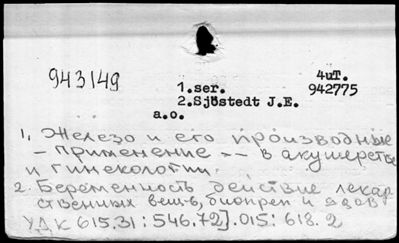 943149
1.ser.
2.Sjöstedt J.E.
a.o.
4uT.
942775
1. Железо и его производные
- применение -- в акушерстве
и гинекологии.
2. Беременность действие лекар
ственных вещ-в, биопреп и ядов
УДК 615.31:546.72].015:618.2